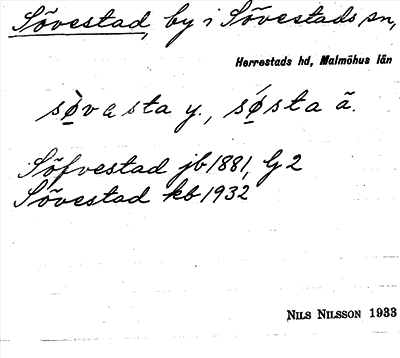 Sövestad, by i Sövestads sn,
Herrestads hd, Malmöhus län
sø̀vasta y., sǿsta ä.
Söfvestad jb 1881, G 2
Sövestad kb 1932
NILS NILSSON 1933